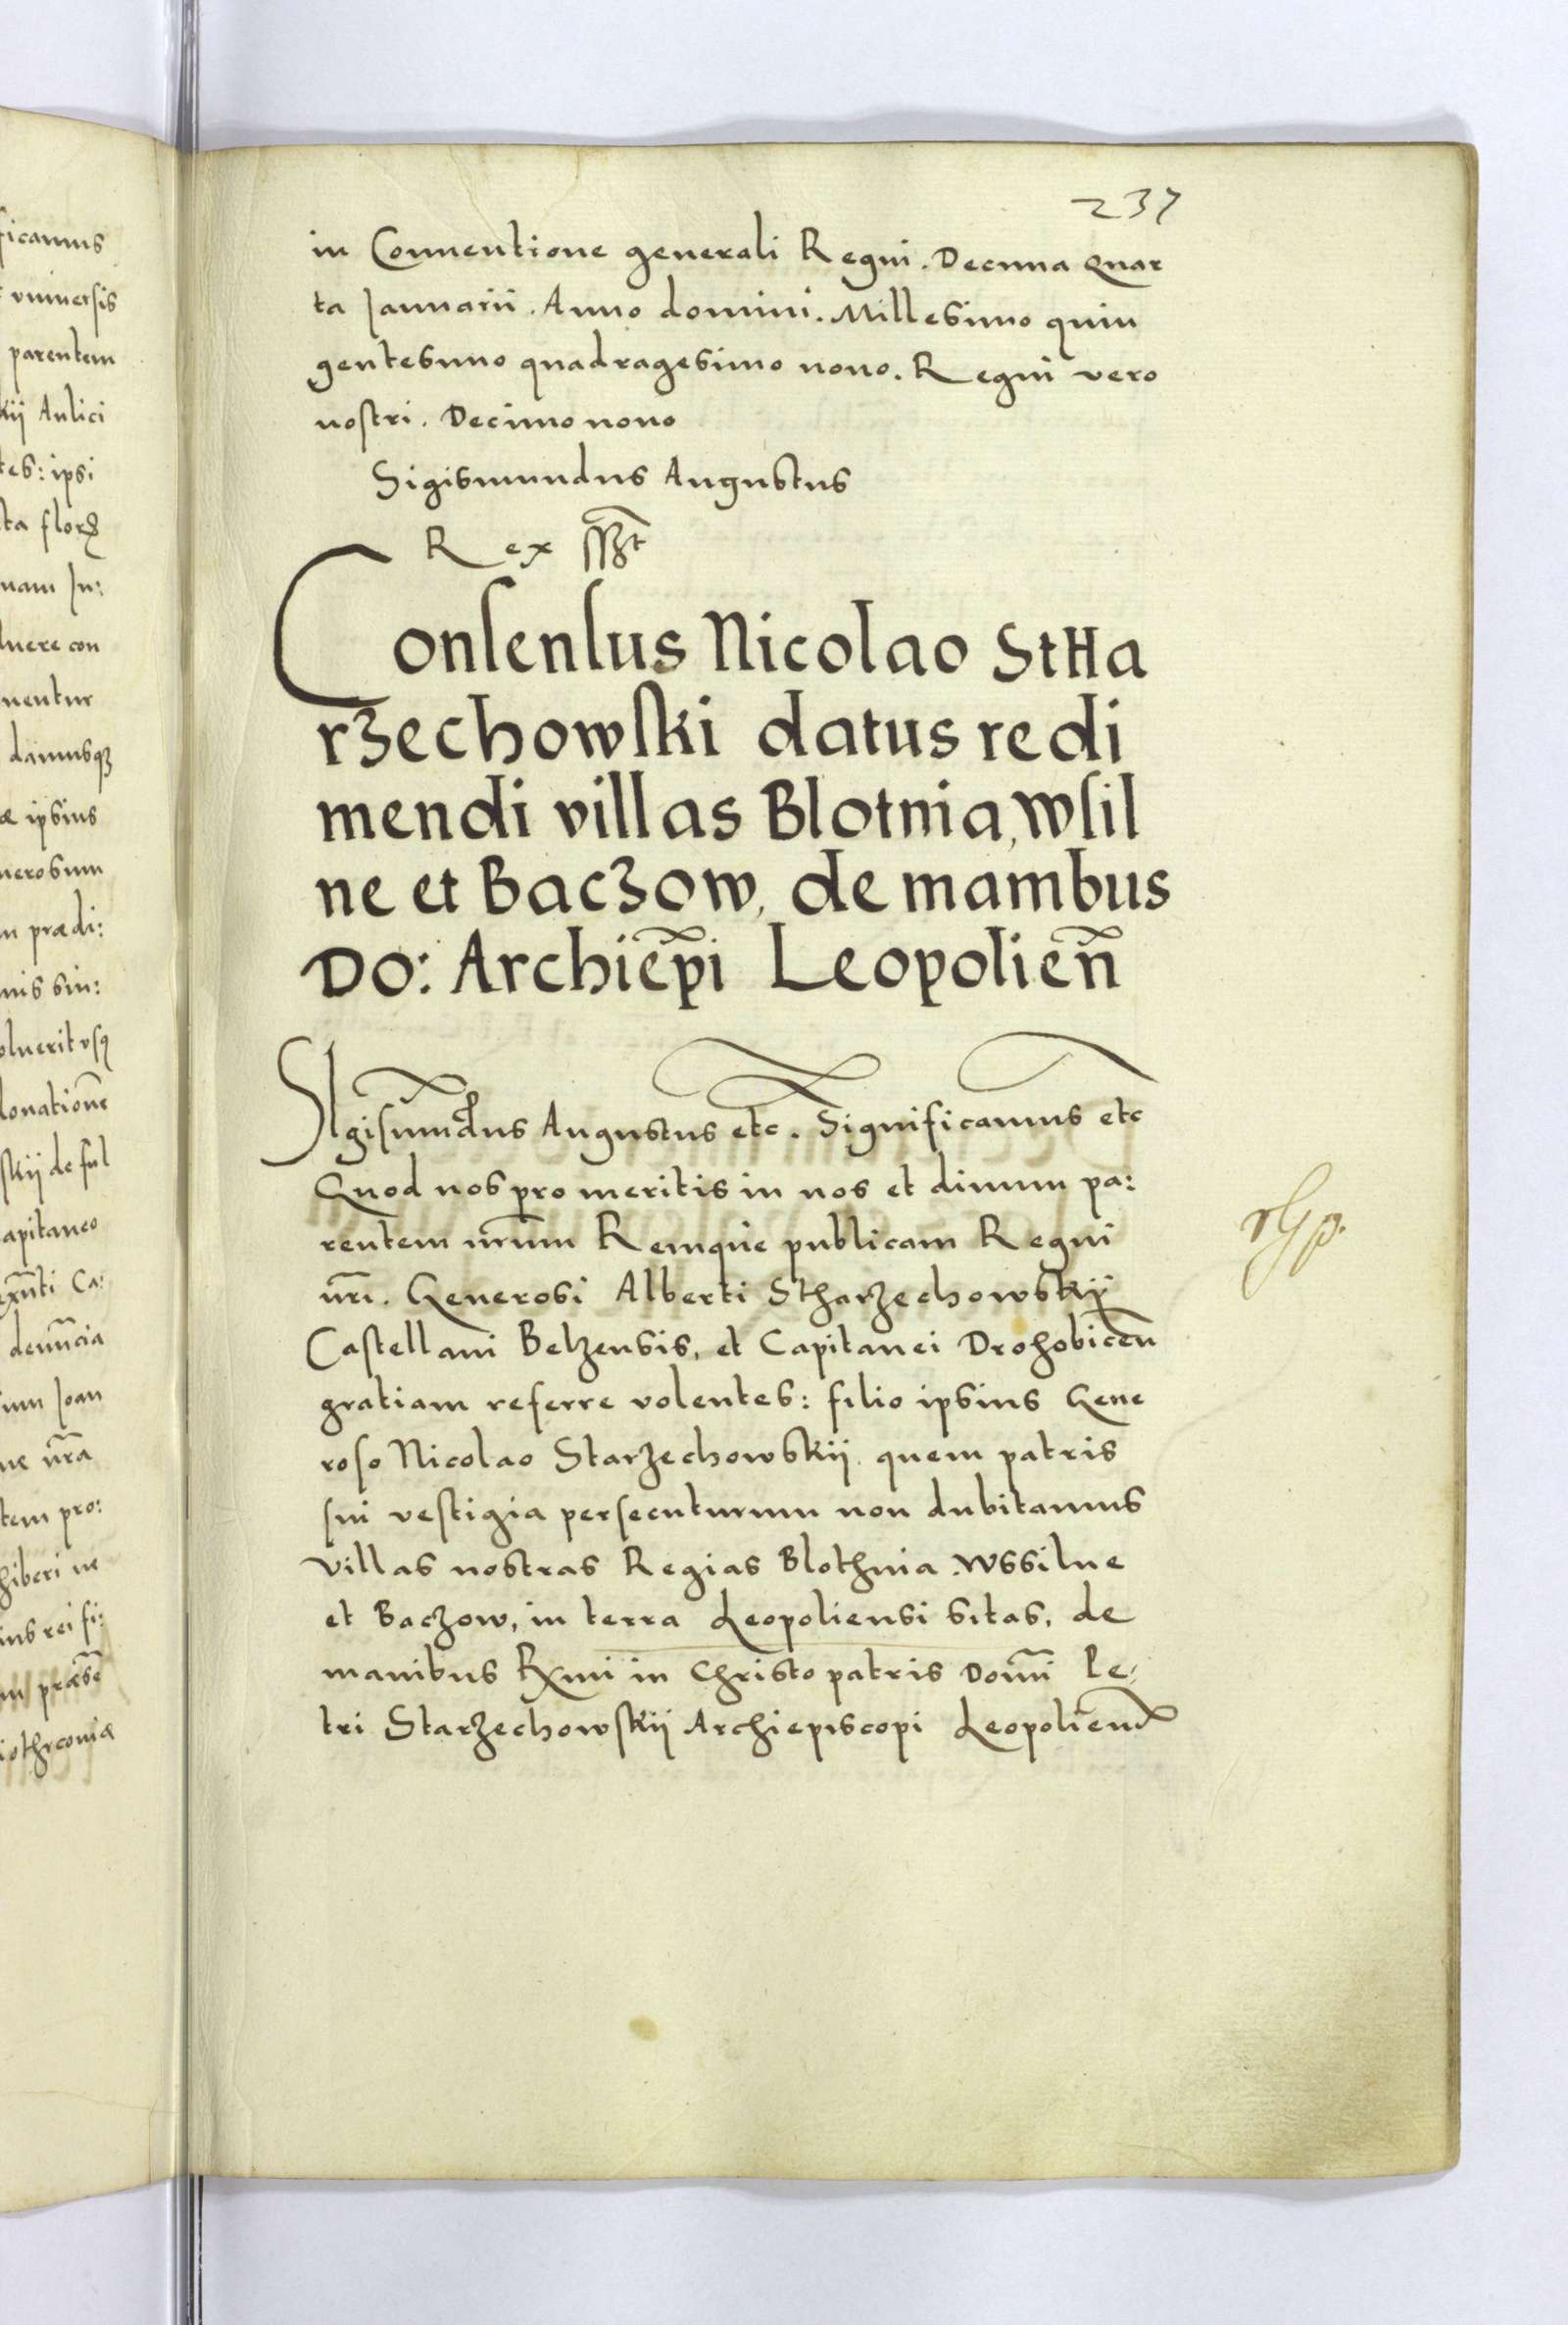 237
in Conuentione generali Regni. Decima Quar
ta Januarii. Anno domini. Millesimo quin
gentesimo quadragesimo nono. Regni vero
nostri. Decimo nono
Sigismundus Augustus
Rex sszt
Consensus Nicolao Stha
rzechowski datus redi
mendi villas Blotnia, Wsil
ne et Baczow, de manibus
Do: Archiep̃i Leopolien̄
Sigismu͂dus Augustus etc. Significamus etc
Quod nos pro meritis in nos et diuum pa:
rentem nr̃um Remque publicam Regni
nr̃i. Generosi Alberti Stharzechowskij
Castellani Belzensis, et Capitanei Drohobicen̄
gratiam referre volentes: filio ipsius Gene
roso Nicolao Starzechowskij quem patris
sui vestigia persecuturum non dubitamus
Villas nostras Regias Blothnia. Wssilne
et Baczow, in terra Leopoliensi sitas, de
manibus Rx̃mi in Christo patris Dom̃i Pe
tri Starzechowskij Archiepiscopi Leopolien̄
ficamus
vniuersis
parentem
kij Aulici
tes: ipsi
ta flor
nam In:
luere con
nentur
damusq
æ ipsius
nerosum
m prædi:
nis sin:
oluerit vsq
donatione͂
skij de ful
apitaneo
Ca:
denu͂cia
um Joan
ne nr̃a
tem pro:
hiberi ne
ius rei fi:
m præse͂
iothrconiæ